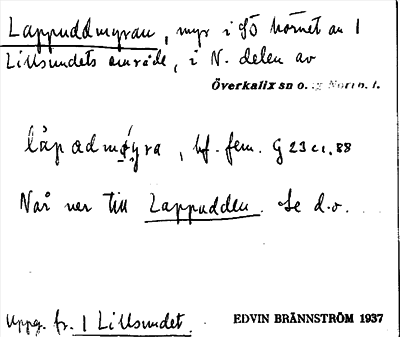 Lappuddmyran, myr i sö hörnet av 1
Lillsundets område, i N. delen av
Överkalix sn o. :g Norrb. l.
låpadmǿyra, bf. fem. G 23 c1. 88
Når ner till Lappudden. Se d.o.
Uppg. fr. 1 Lillsundet. EDVIN BRÄNNSTRÖM 1937